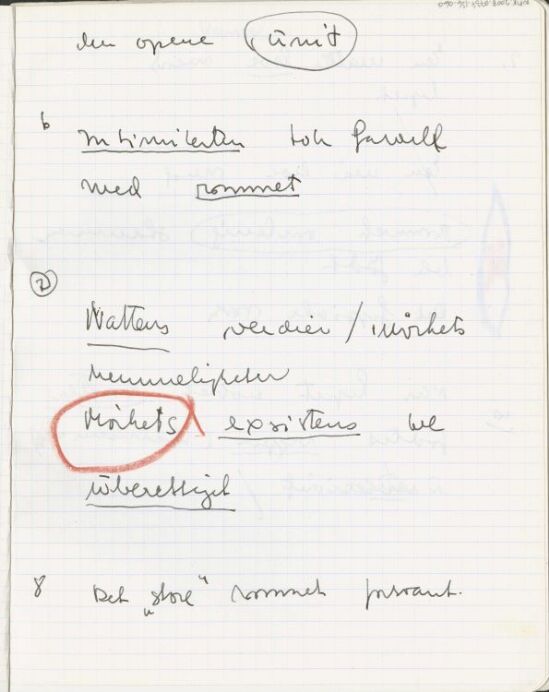 den åpne
6 Intimiteten tok farvel
med rommet
7 Nattens verdier / mørkets
hemmeligheter
Mørkets existens ble
uberettiget
8 Det "store" rommet forsvant.